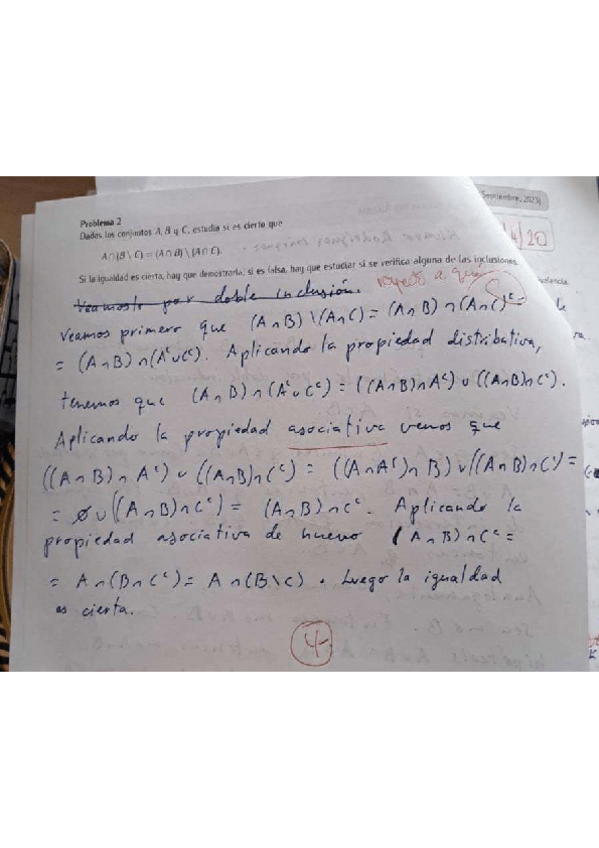 Septiembre, 2023)
4/20
Problema 2
Dados los conjuntos A, B y C, estudia si es cierto que
A∩(B \ C) = (A∩B) \ (A∩C).
Si la igualdad es cierta, hay que demostrarla; si es falsa, hay que estudiar si se verifica alguna de las inclusiones.
Veamoslo por doble inclusión.
respecto a qué
Veamos primero que (A∩B) \ (A∩C) = (A∩B) ∩ (A∩C)ᶜ =
= (A∩B) ∩ (Aᶜ∪Cᶜ). Aplicando la propiedad distributiva,
tenemos que (A∩B) ∩ (Aᶜ∪Cᶜ) = ((A∩B)∩Aᶜ) ∪ ((A∩B)∩Cᶜ).
Aplicando la propiedad asociativa vemos que
((A∩B)∩Aᶜ) ∪ ((A∩B)∩Cᶜ) = ((A∩Aᶜ)∩B) ∪ ((A∩B)∩Cᶜ) =
= ∅ ∪ ((A∩B)∩Cᶜ) = (A∩B)∩Cᶜ. Aplicando la
propiedad asociativa de nuevo (A∩B)∩Cᶜ =
= A∩(B∩Cᶜ) = A∩(B\C). Luego la igualdad
es cierta.
4